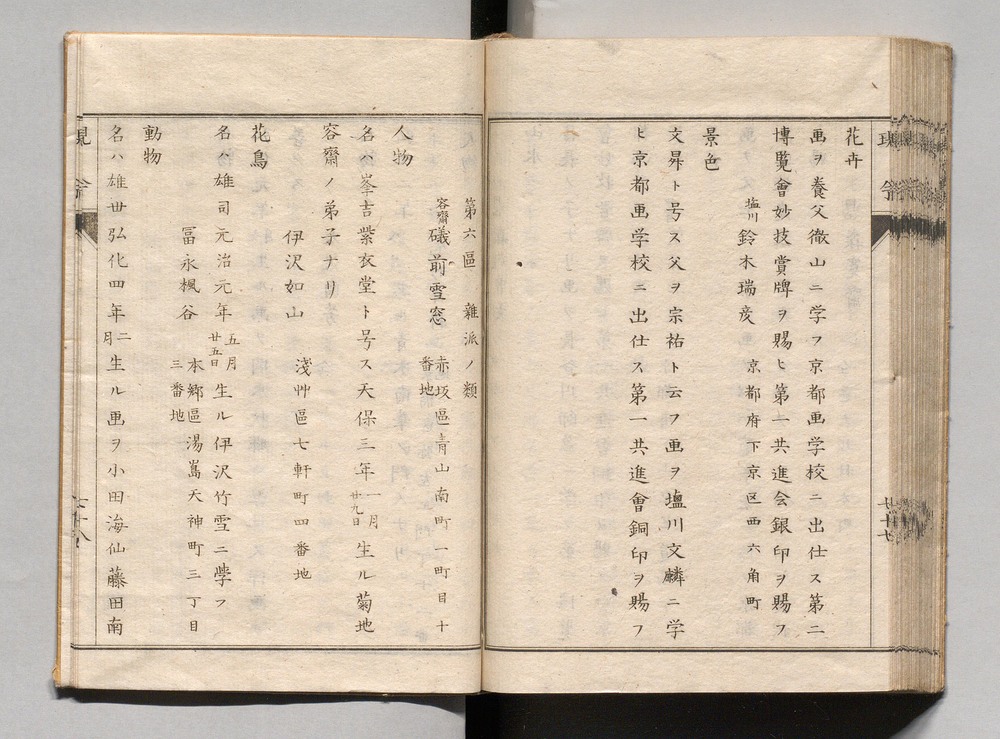 花卉
画ヲ養父徹山ニ学フ京都画学校ニ出仕ス第二
博覧會妙技賞牌ヲ賜ヒ第一共進会銀印ヲ賜フ
塩川 鈴木瑞彦 京都府下京区西六角町
景色
文昇ト号ス父ヲ宗祐ト云フ画ヲ塩川文麟ニ学
ヒ京都画学校ニ出仕ス第一共進會銅印ヲ賜フ
第六區 雜派ノ類
容齋 礒前雪窓 赤坂區青山南町一町目十
番地
人物
名ハ峯吉紫衣堂ト号ス天保三年一月
廿九日生ル菊地
容齋ノ弟子ナリ
伊沢如山 淺艸區七軒町四番地
花鳥
名ハ雄司元治元年五月
廿五日生ル伊沢竹雪ニ學フ
冨永楓谷 本郷區湯嶌天神町三丁目
三番地
動物
名ハ雄丗弘化四年二
月生ル画ヲ小田海仙藤田南